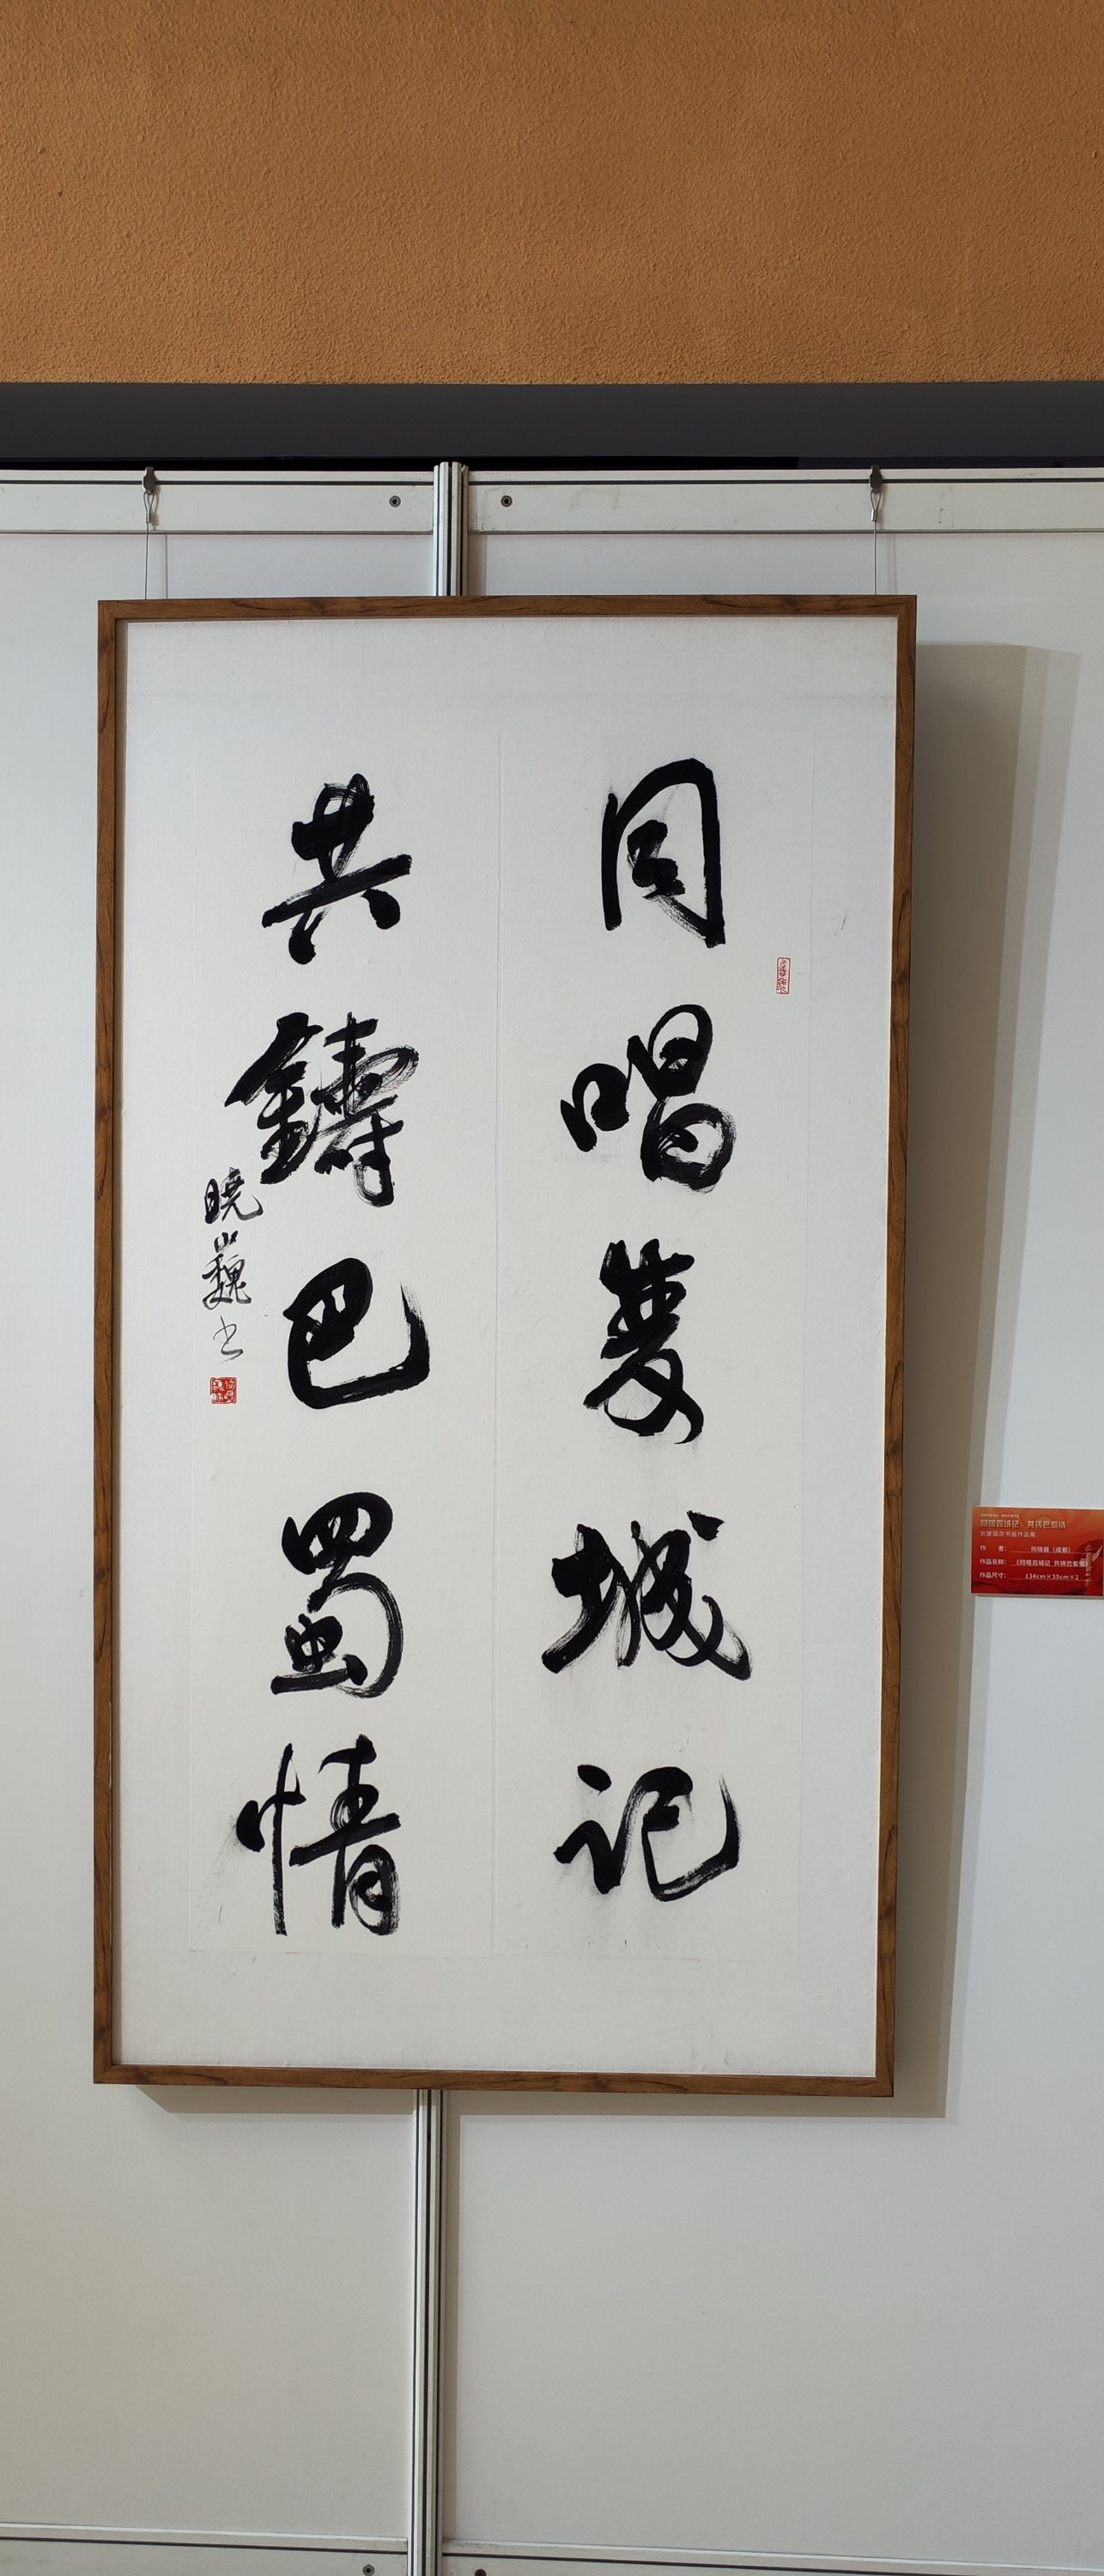 同唱雙城记
共鑄巴蜀情
曉巍书
同唱双城记 共铸巴蜀情
作 者： 何晓巍（成都）
作品名称： 《同唱双城记 共铸巴蜀情》
作品尺寸： 134cm×35cm×2